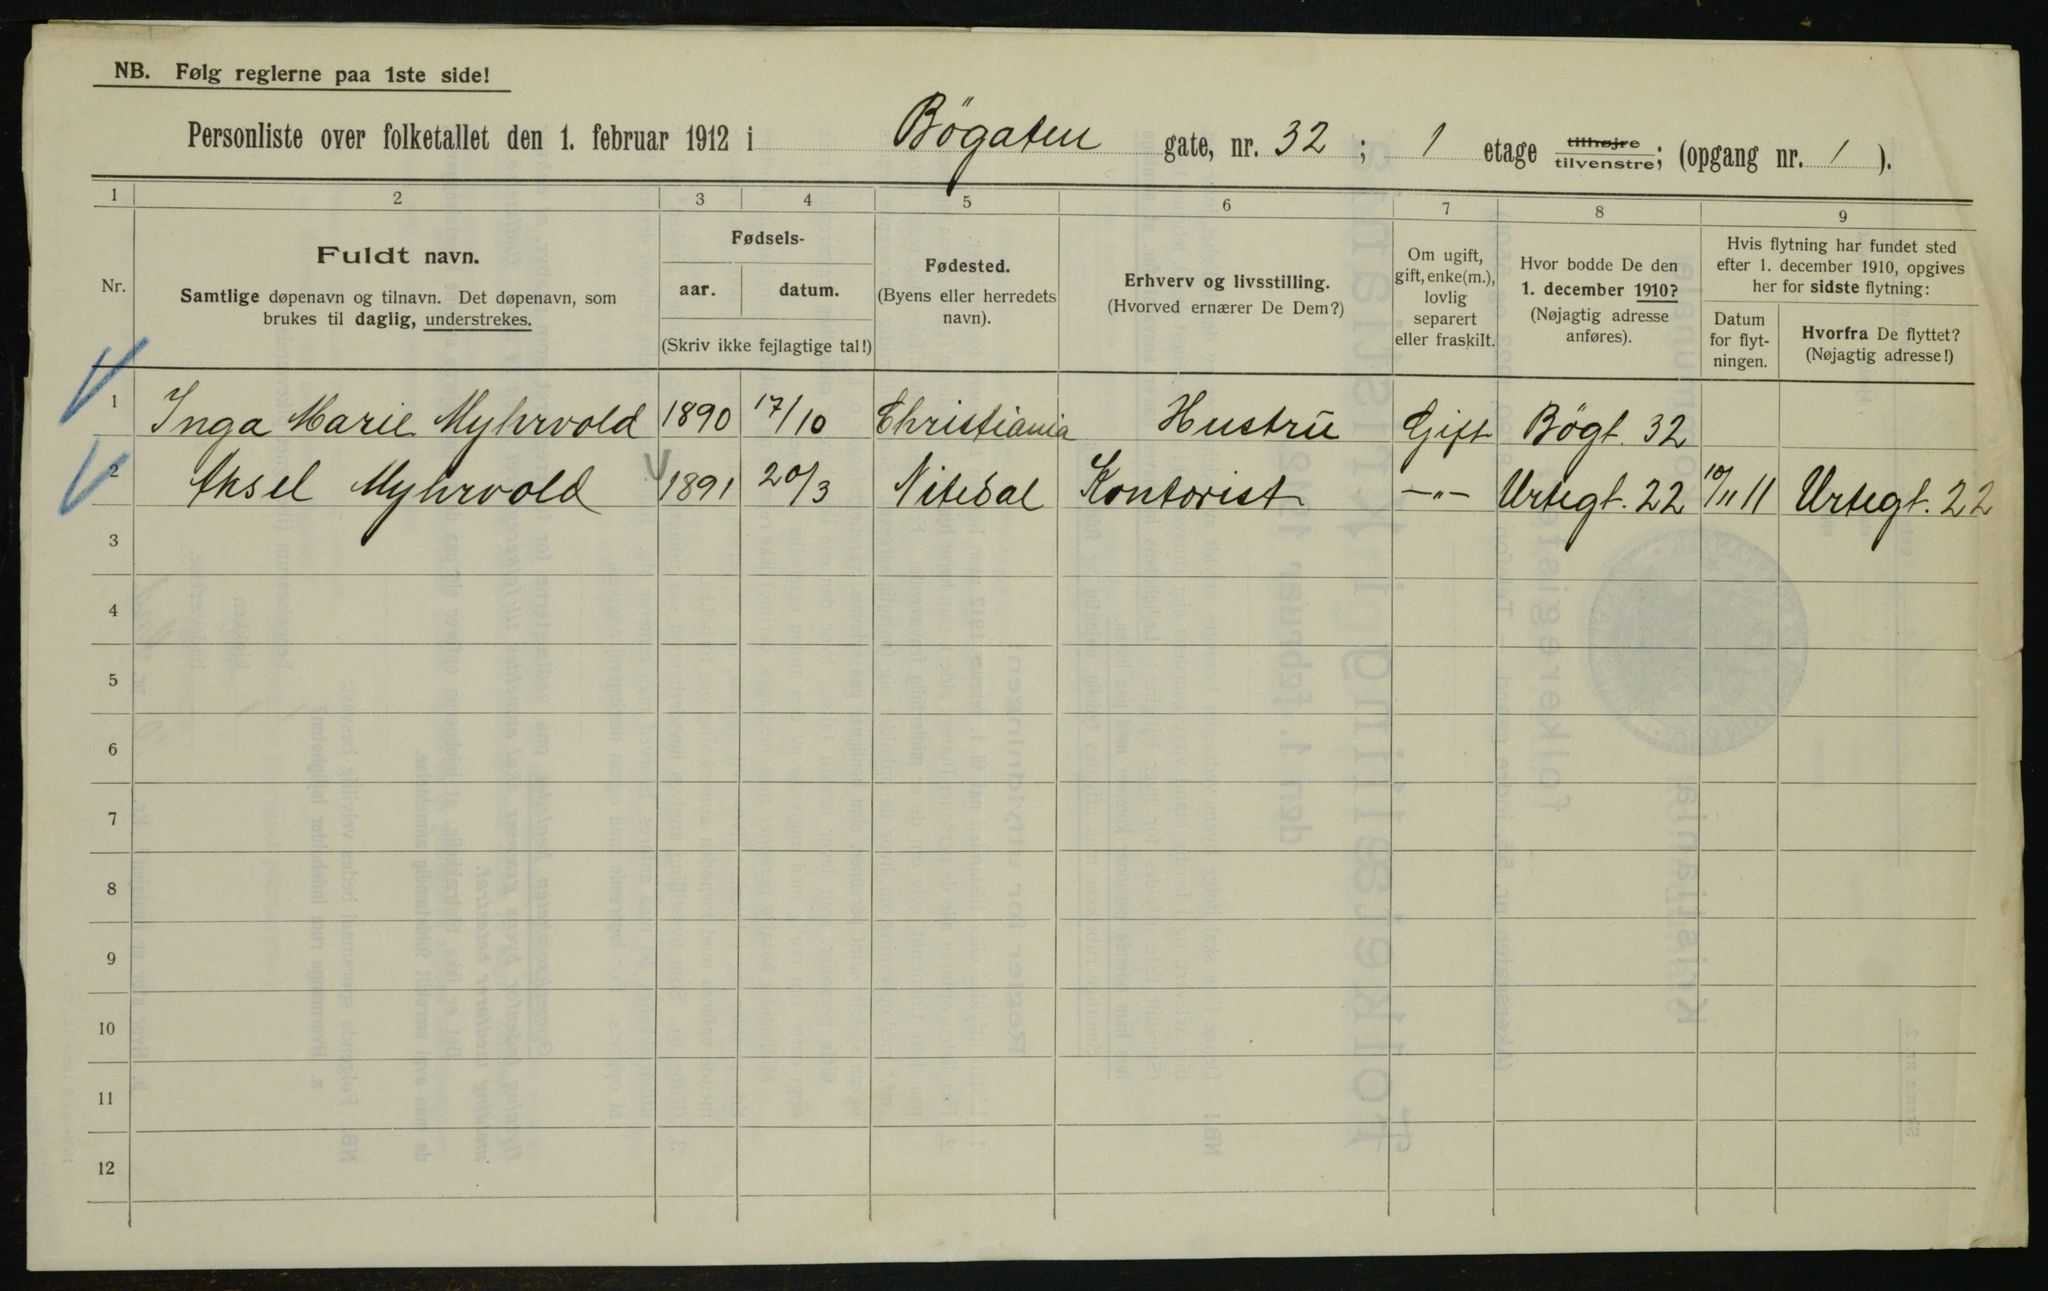 NB. Følg reglerne paa 1ste side!
Personliste over folketallet den 1. februar 1912 i Bögaten gate, nr. 32 ; 1 etage tilhøjre tilvenstre; (opgang nr. 1 ).
1 2 3 4 5 6 7 8 9
Nr.
Fuldt navn.
Samtlige døpenavn og tilnavn. Det døpenavn, som
brukes til daglig, understrekes.
Fødsels-
aar. datum.
(Skriv ikke fejlagtige tal!)
Fødested.
(Byens eller herredets
navn).
Erhverv og livsstilling.
(Hvorved ernærer De Dem?)
Om ugift,
gift, enke(m.),
lovlig
separert
eller fraskilt.
Hvor bodde De den
1. december 1910?
(Nøjagtig adresse
anføres).
Hvis flytning har fundet sted
efter 1. december 1910, opgives
her for sidste flytning:
Datum
for flyt-
ningen.
Hvorfra De flyttet?
(Nøjagtig adresse!)
1 Inga Marie Myhrvold 1890 17/10 Christiania Hustrü Gift Bögt. 32
2 Aksel Myhrvold 1891 20/3 Nitedal Kontorist —„— Urtegt. 22 10/11 11 Urtegt. 22
3
4
5
6
7
8
9
10
11
12